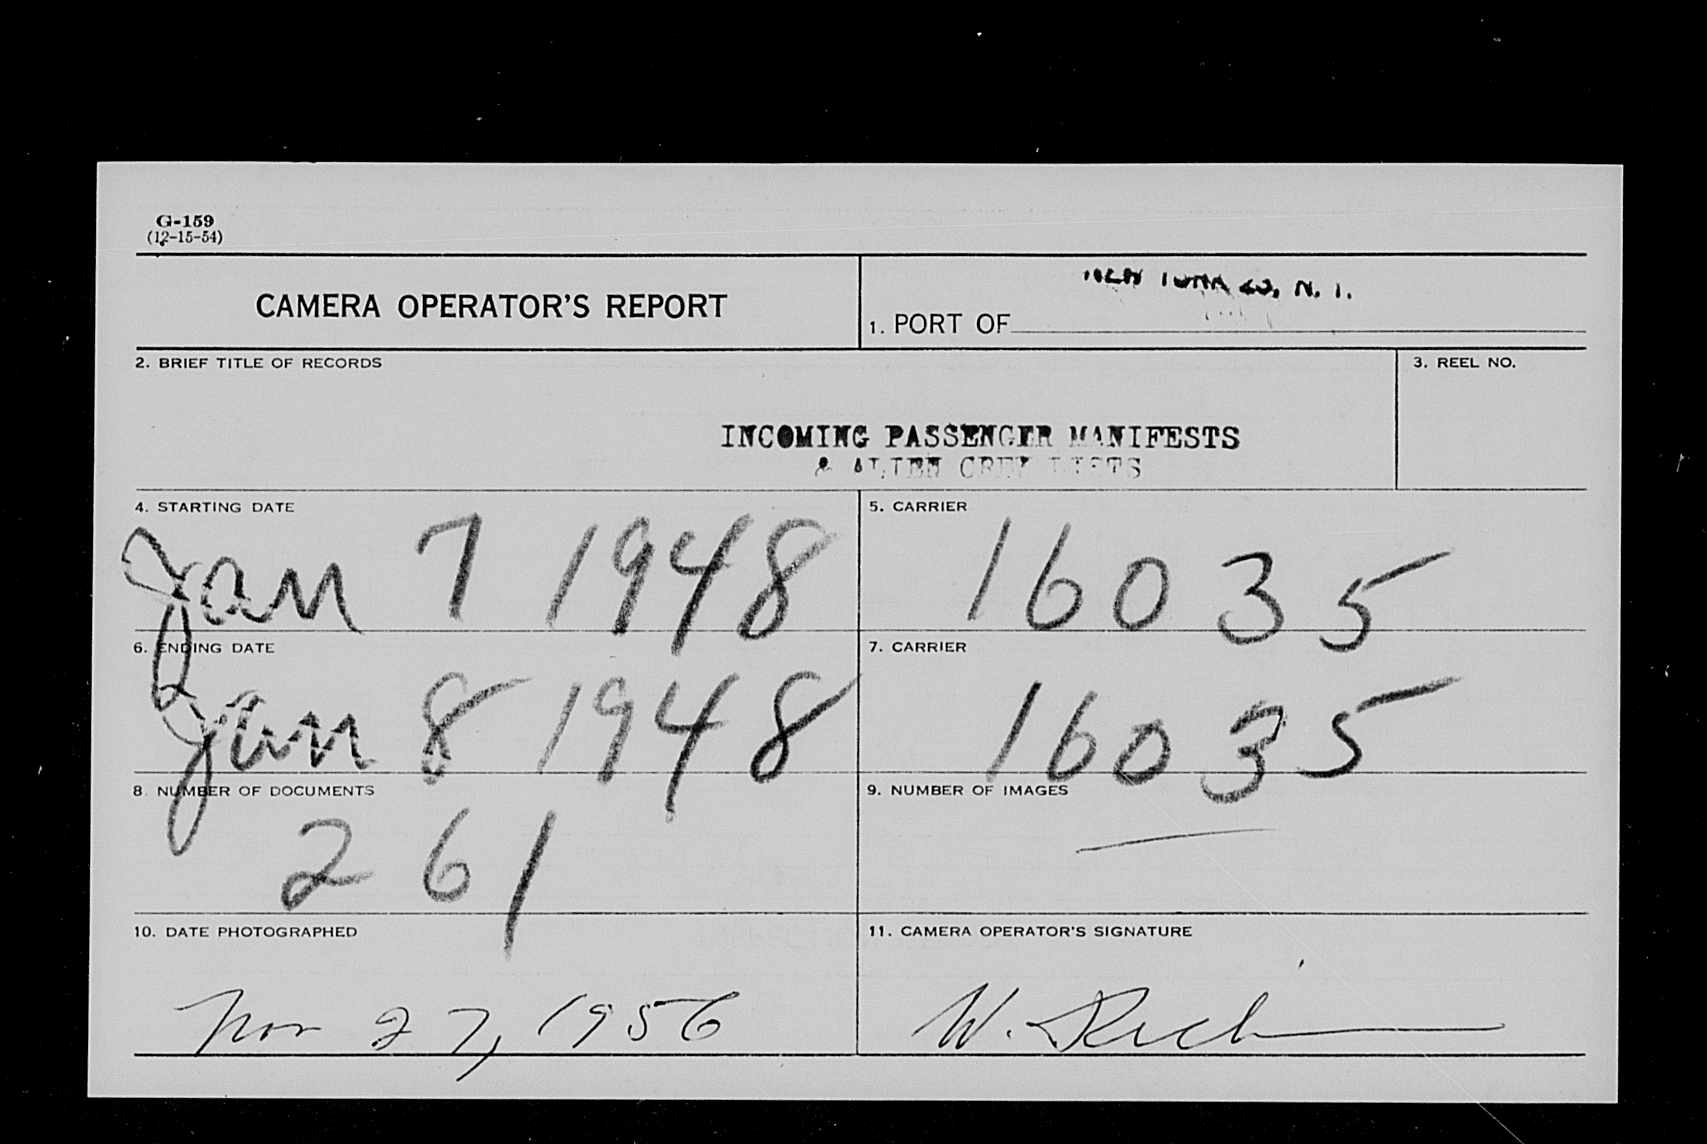 G-159
(12-15-54)
CAMERA OPERATOR'S REPORT
1. PORT OF NEW YORK 23, N. Y.
2. BRIEF TITLE OF RECORDS
3. REEL NO.
INCOMING PASSENGER MANIFESTS
& ALIEN CREW LISTS
4. STARTING DATE
Jan 7 1948
5. CARRIER
16035
6. ENDING DATE
Jan 8 1948
7. CARRIER
16035
8. NUMBER OF DOCUMENTS
261
9. NUMBER OF IMAGES
10. DATE PHOTOGRAPHED
Nov 27, 1956
11. CAMERA OPERATOR'S SIGNATURE
W.